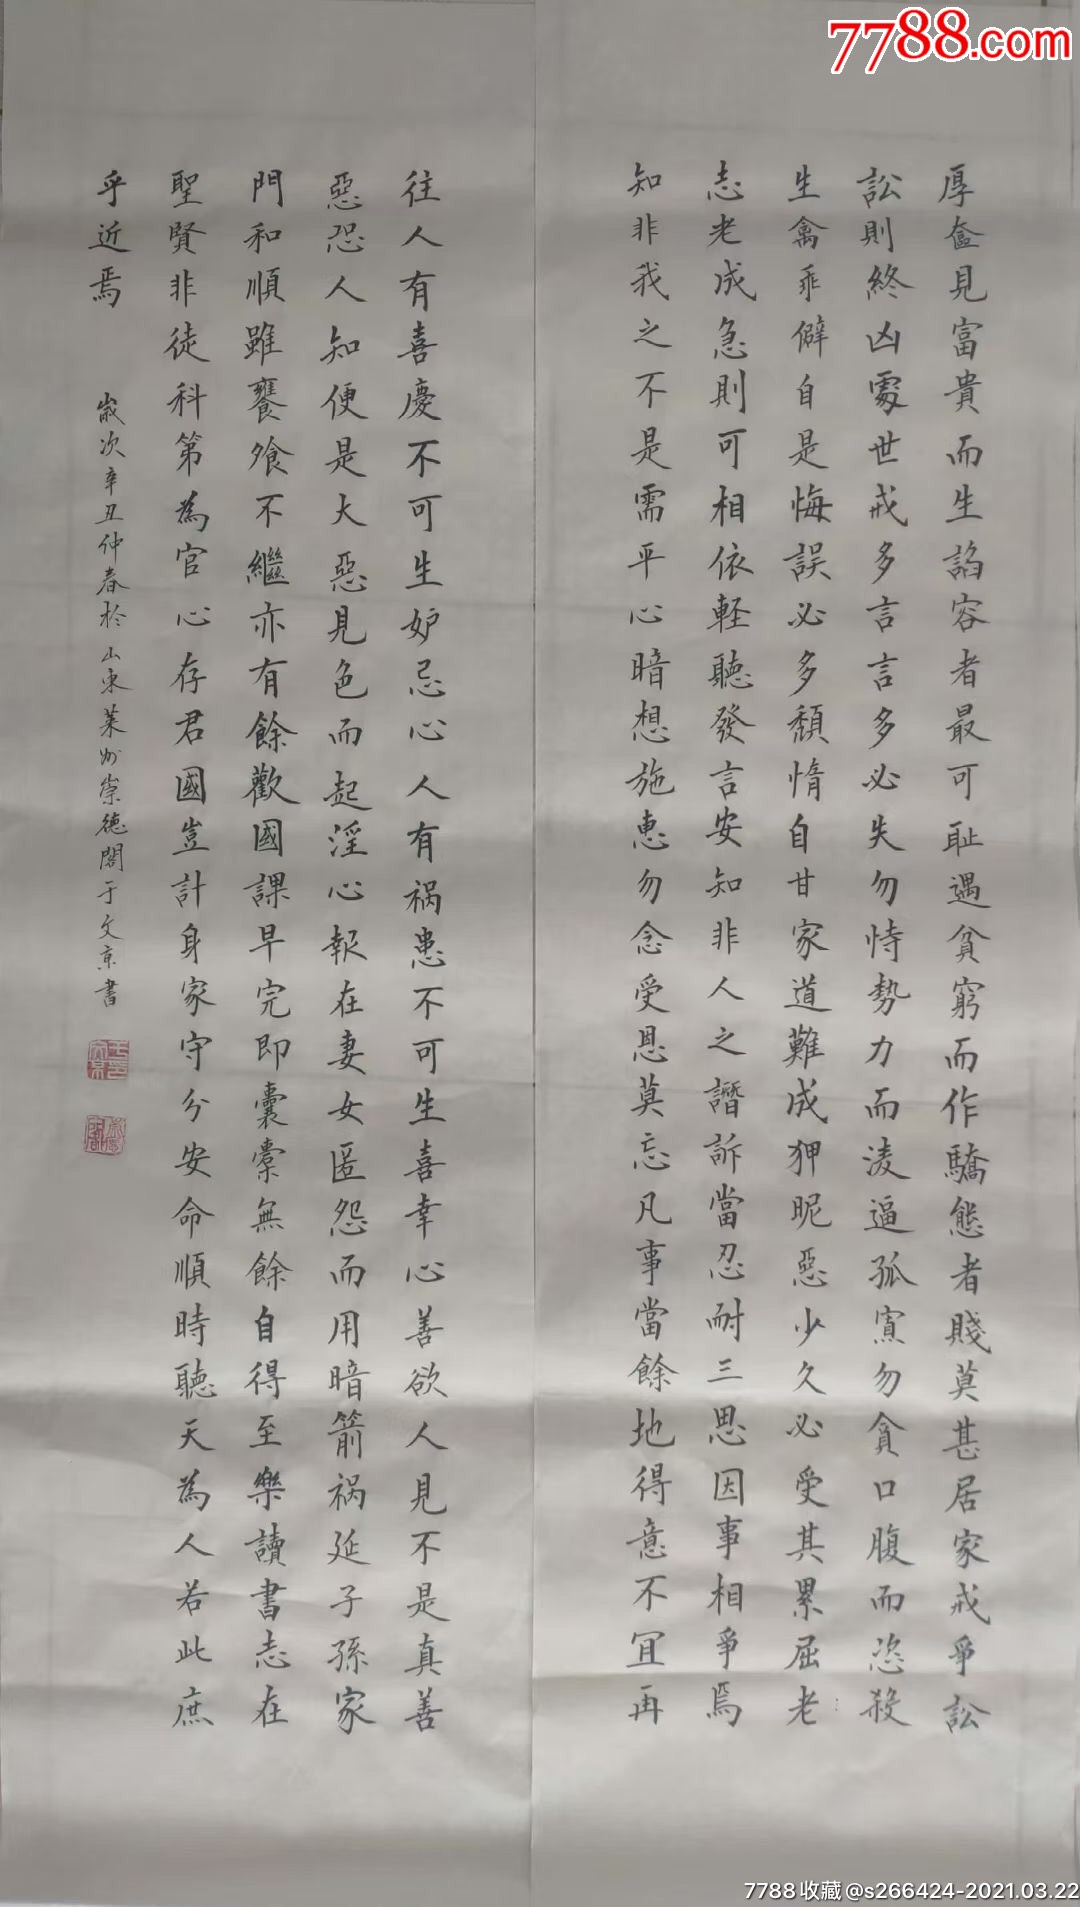 7788.com
厚奩見富貴而生諂容者最可耻遇貧窮而作驕態者賤莫甚居家戒爭訟
訟則終凶處世戒多言言多必失勿恃勢力而淩逼孤寡勿貪口腹而恣殺
生禽乖僻自是悔誤必多頹惰自甘家道難成狎昵惡少久必受其累屈老
志老成急則可相依軽聽發言安知非人之譖訴當忍耐三思因事相爭焉
知非我之不是需平心暗想施惠勿念受恩莫忘凡事當餘地得意不宜再
往人有喜慶不可生妒忌心人有禍患不可生喜幸心善欲人見不是真善
惡恐人知便是大惡見色而起淫心報在妻女匿怨而用暗箭禍延子孫家
門和順雖饔飧不繼亦有餘歡國課早完即囊橐無餘自得至樂讀書志在
聖賢非徒科第為官心存君國豈計身家守分安命順時聽天為人若此庶
乎近焉
歲次辛丑仲春於山東萊州崇德閣于文京書
7788收藏@s266424-2021.03.22